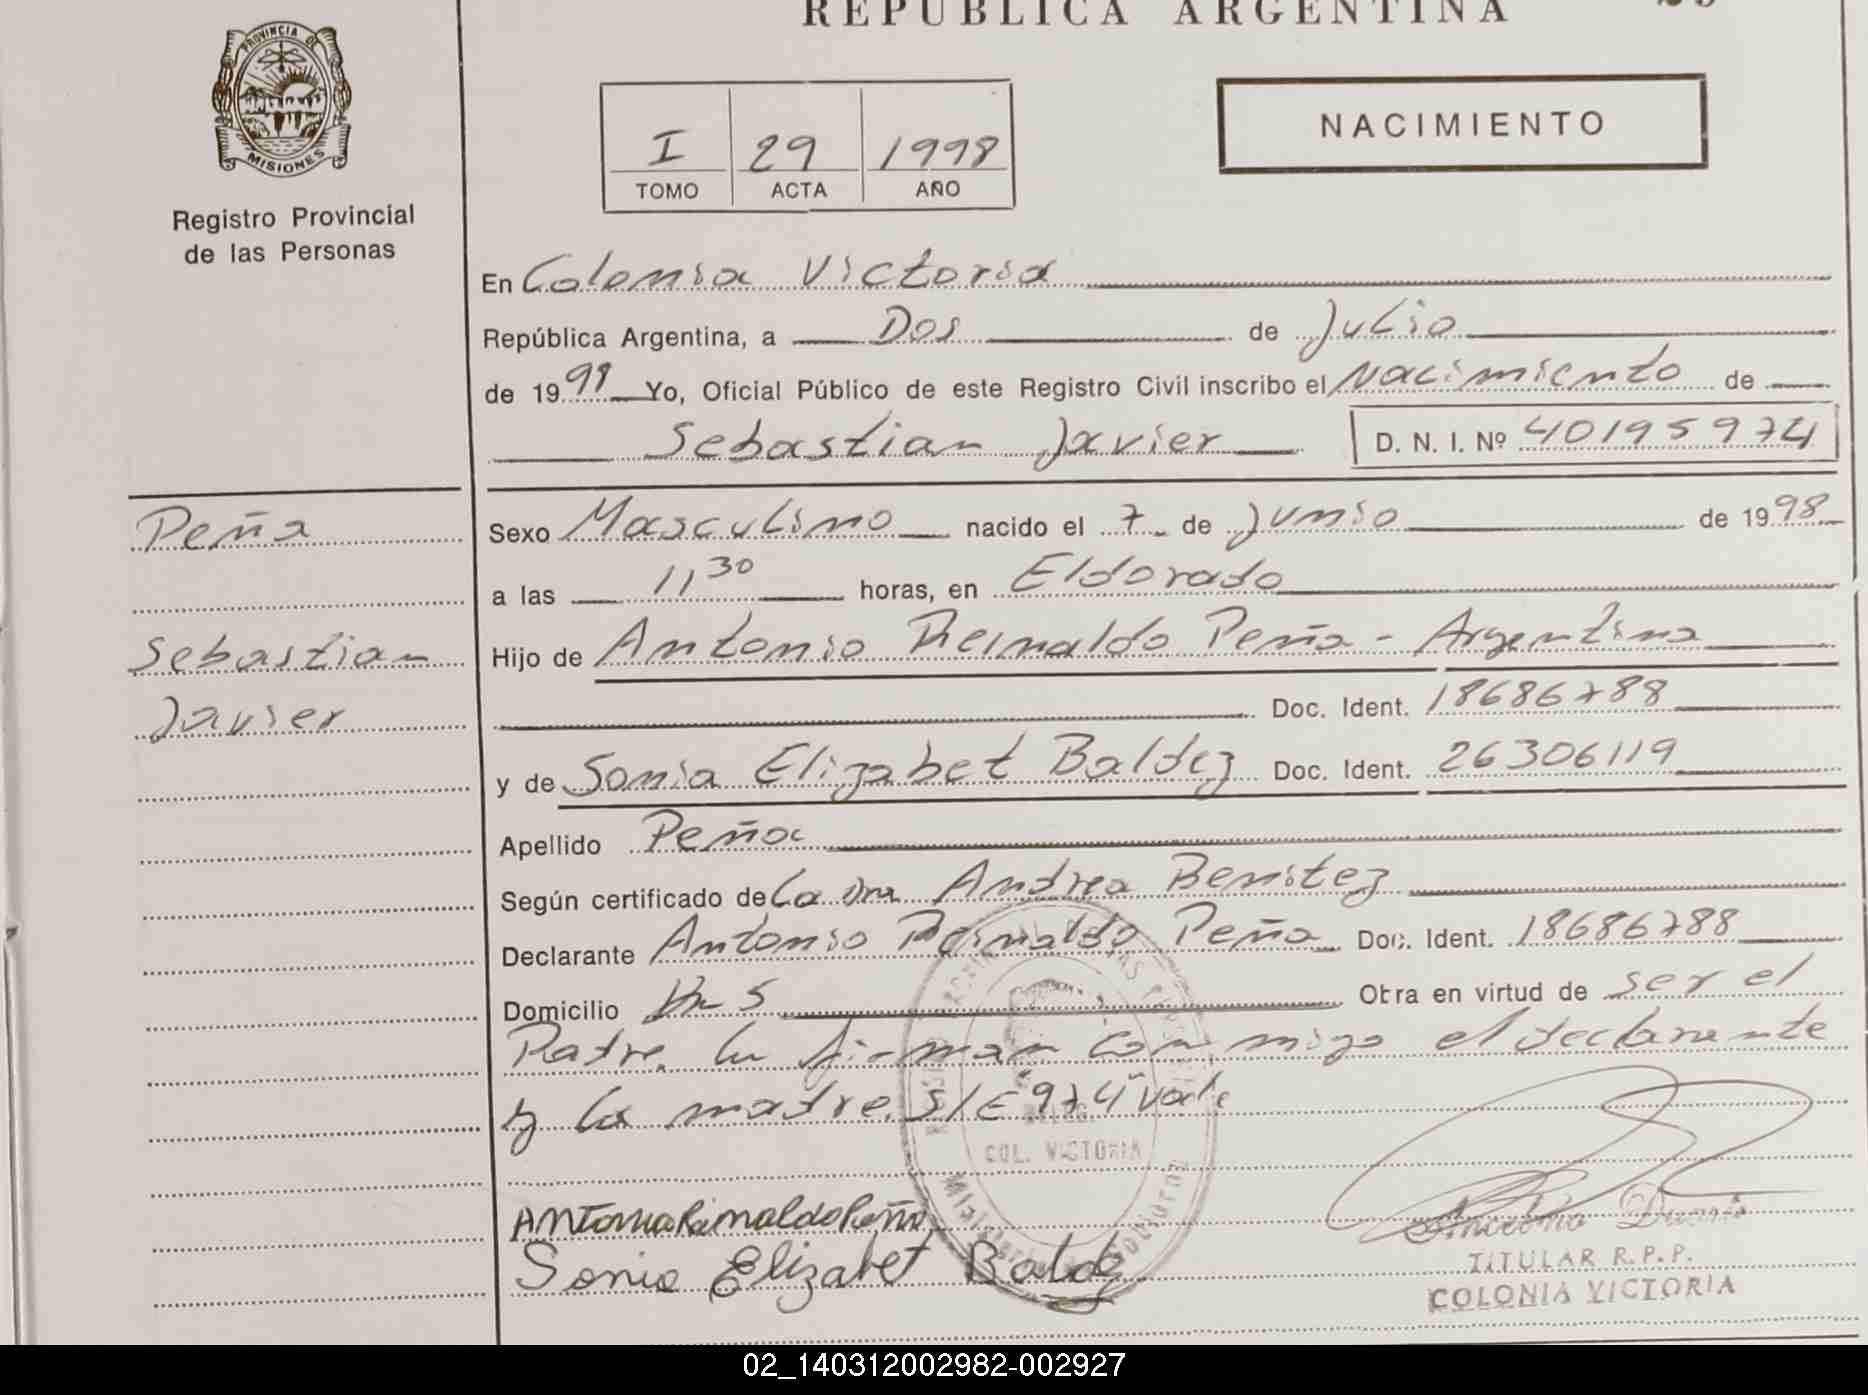 REPUBLICA ARGENTINA
PROVINCIA DE
MISIONES
Registro Provincial
de las Personas
I 29 1998
TOMO ACTA AÑO
NACIMIENTO
En Colonia Victoria
República Argentina, a Dos de Julio
de 1998 Yo, Oficial Público de este Registro Civil inscribo el Nacimiento de
Sebastian Javier D. N. I. Nº 40195974
Peña
Sebastian
Javier
Sexo Masculino nacido el 7 de Junio de 1998
a las 11,30 horas, en Eldorado
Hijo de Antonio Reinaldo Peña - Argentina
Doc. Ident. 18686788
y de Sonia Elizabet Baldez Doc. Ident. 26306119
Apellido Peña
Según certificado de La Dra Andrea Benitez
Declarante Antonio Reinaldo Peña Doc. Ident. 18686788
Domicilio Km 5 Obra en virtud de ser el
Padre. firman conmigo el declarante
y la madre. S/E "974" vale
COL. VICTORIA
Antonio Reinaldo Peña
Sonia Elizabet Baldez
Duarte
TITULAR R.P.P.
COLONIA VICTORIA
02_140312002982-002927